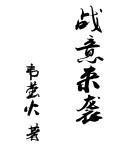 战意来袭
韦萤火 著